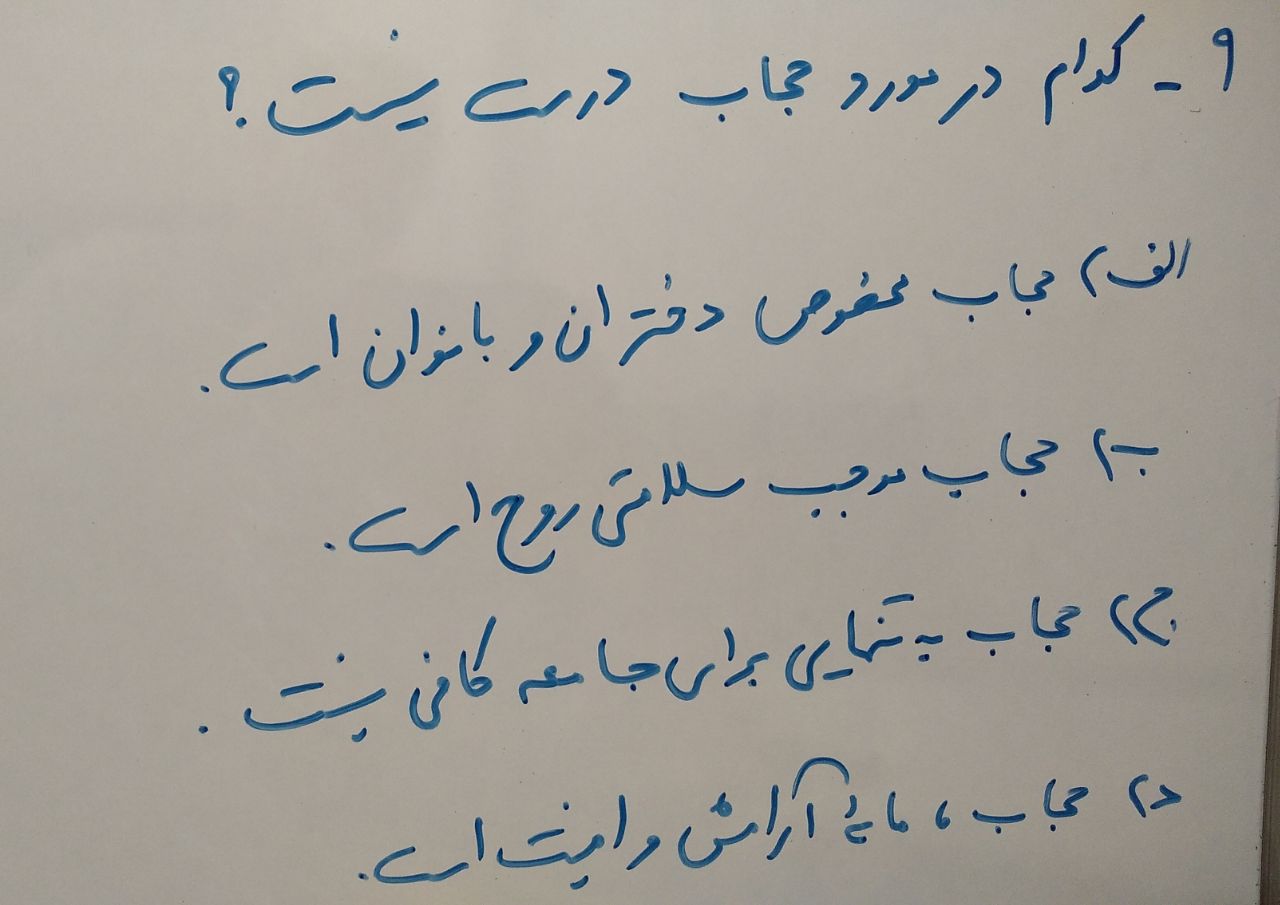 ۹ - کدام در مورد حجاب درست نیست؟
الف) حجاب مخصوص دختران و بانوان است.
ب) حجاب موجب سلامتی روح است.
ج) حجاب به تنهایی برای جامعه کافی نیست.
د) حجاب، مایهٔ آرامش و امنیت است.